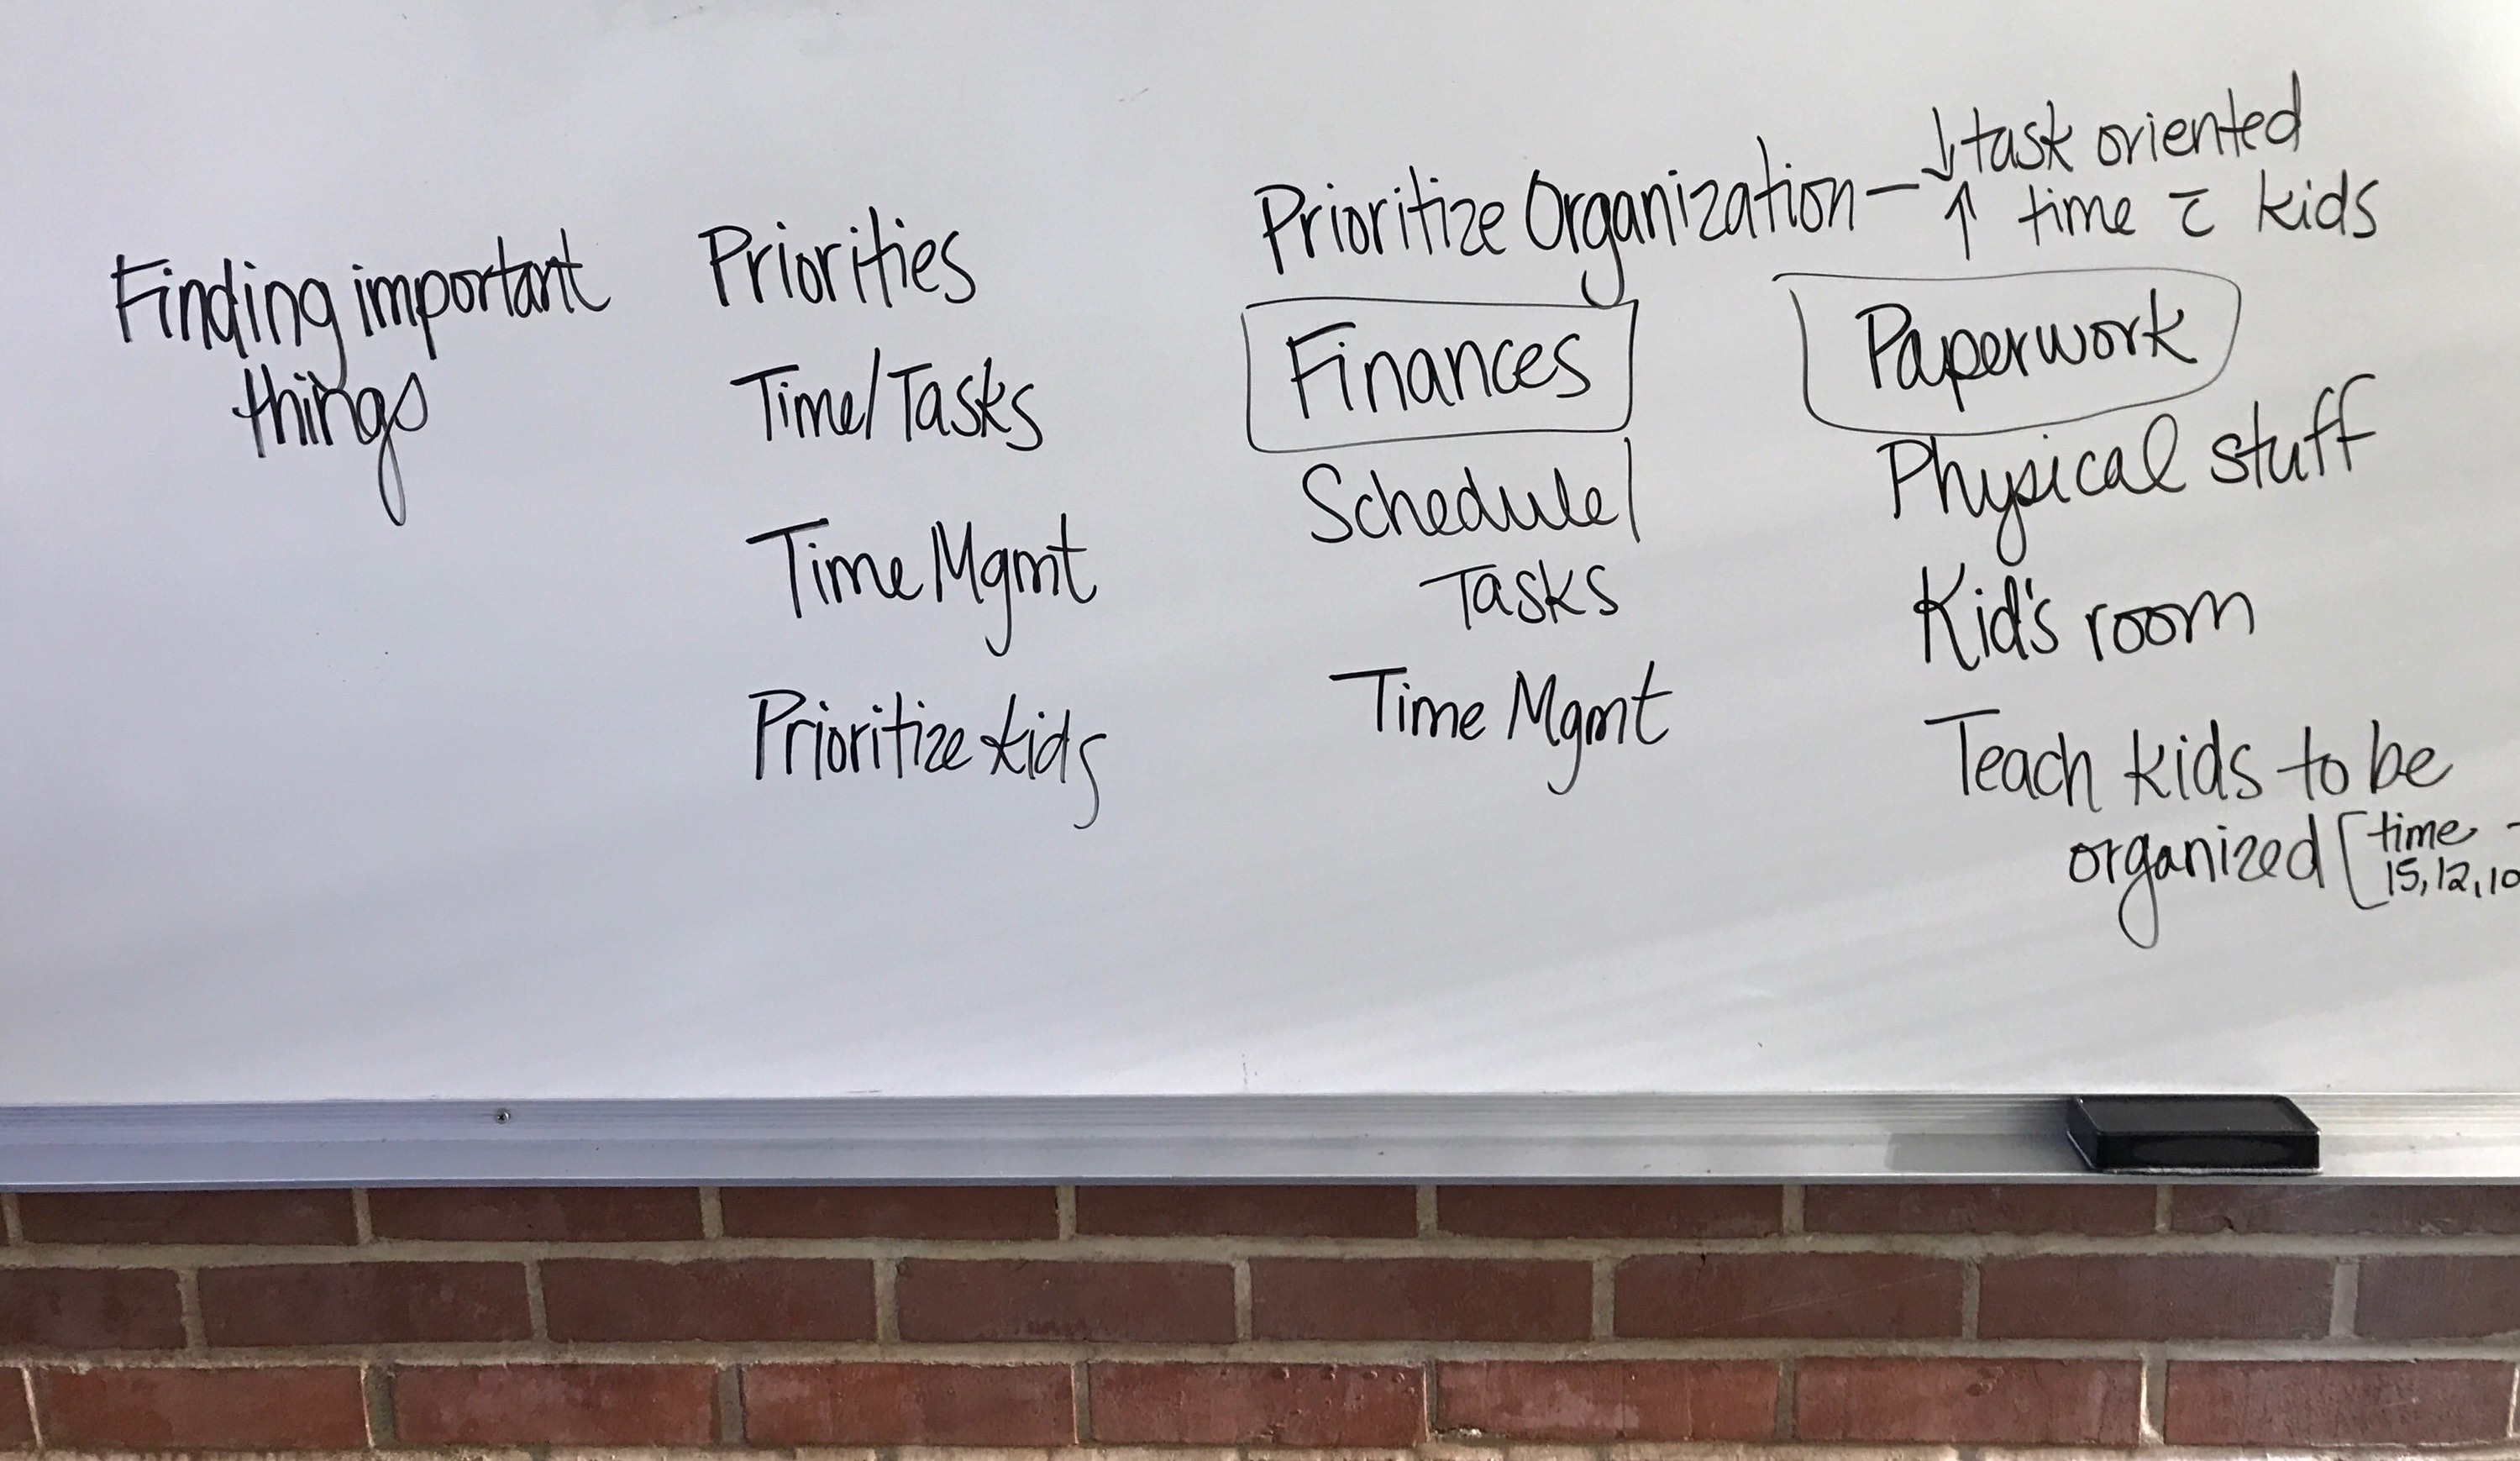 Finding important
things
Priorities
Time/Tasks
Time Mgmt
Prioritize kids
Prioritize Organization — ↓ task oriented
↑ time c̄ kids
Finances
Schedule/
Tasks
Time Mgmt
Paperwork
Physical stuff
Kid's room
Teach kids to be
organized [time -
15, 12, 10